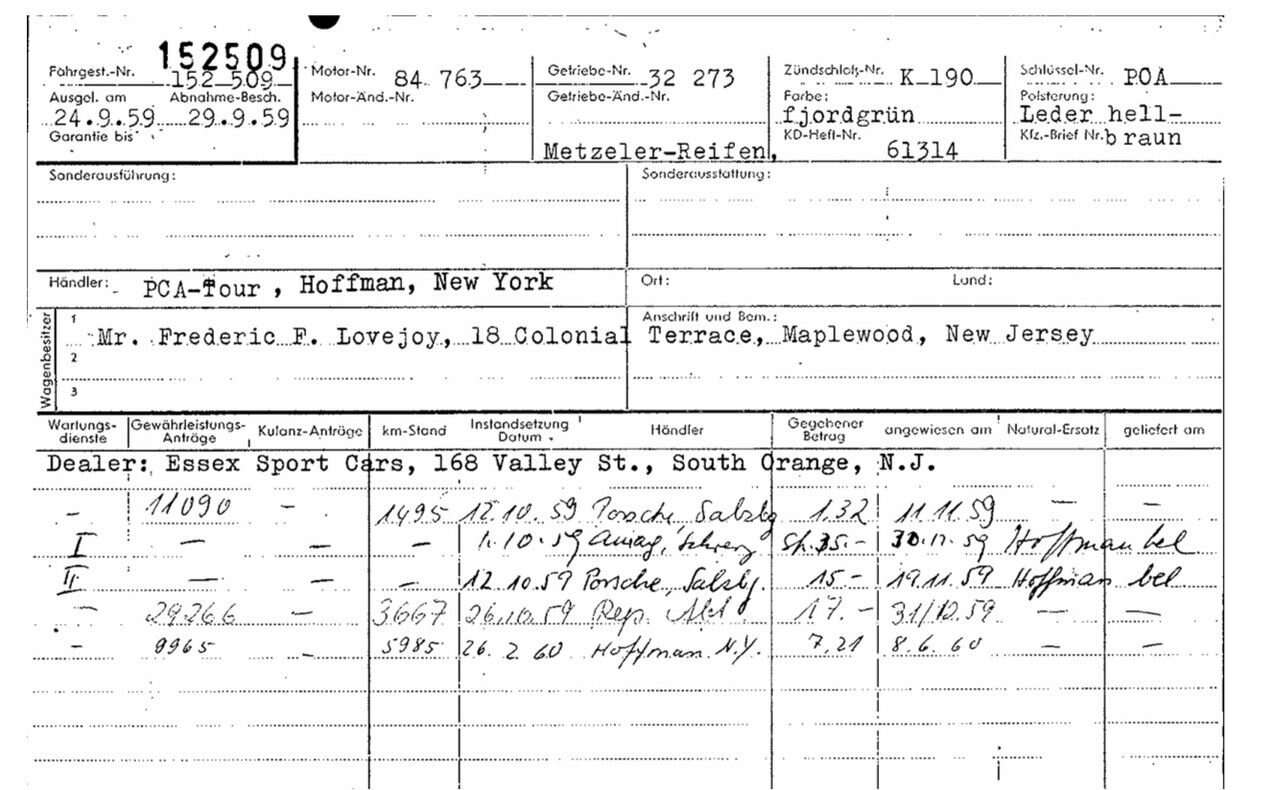 152509
Fahrgest.-Nr. 152 509 Motor-Nr. 84 763 Getriebe-Nr. 32 273 Zündschloß-Nr. K 190 Schlüssel-Nr. POA
Ausgel. am Abnahme-Besch. Motor-Änd.-Nr. Getriebe-Änd.-Nr. Farbe: Polsterung:
24.9.59 29.9.59 fjordgrün Leder hell-
Garantie bis KD-Heft-Nr. Kfz.-Brief Nr. braun
Metzeler-Reifen, 61314
Sonderausführung: Sonderausstattung:
Händler: PCA-Tour , Hoffman, New York Ort: Land:
Wagenbesitzer
Anschrift und Bem.:
1 Mr. Frederic F. Lovejoy, 18 Colonial Terrace, Maplewood, New Jersey
2
3
Wartungs-dienste Gewährleistungs-Anträge Kulanz-Anträge km-Stand Instandsetzung Datum Händler Gegebener Betrag angewiesen am Natural-Ersatz geliefert am
Dealer: Essex Sport Cars, 168 Valley St., South Orange, N.J.
- 11090 - 1495 12.10.59 Porsche, Salzbg 1.32 11.11.59 - -
I - - - 1.10.59 Amag, Sfr. 35.- 30.11.59 Hoffman bel
II - - - 12.10.59 Porsche, Salzbg. 15.- 19.11.59 Hoffman bel
- 29266 - 3667 26.10.59 Rep. Abt. 17.- 31/12.59 - -
- 9965 - 5985 26.2.60 Hoffman N.Y. 7,21 8.6.60 - -